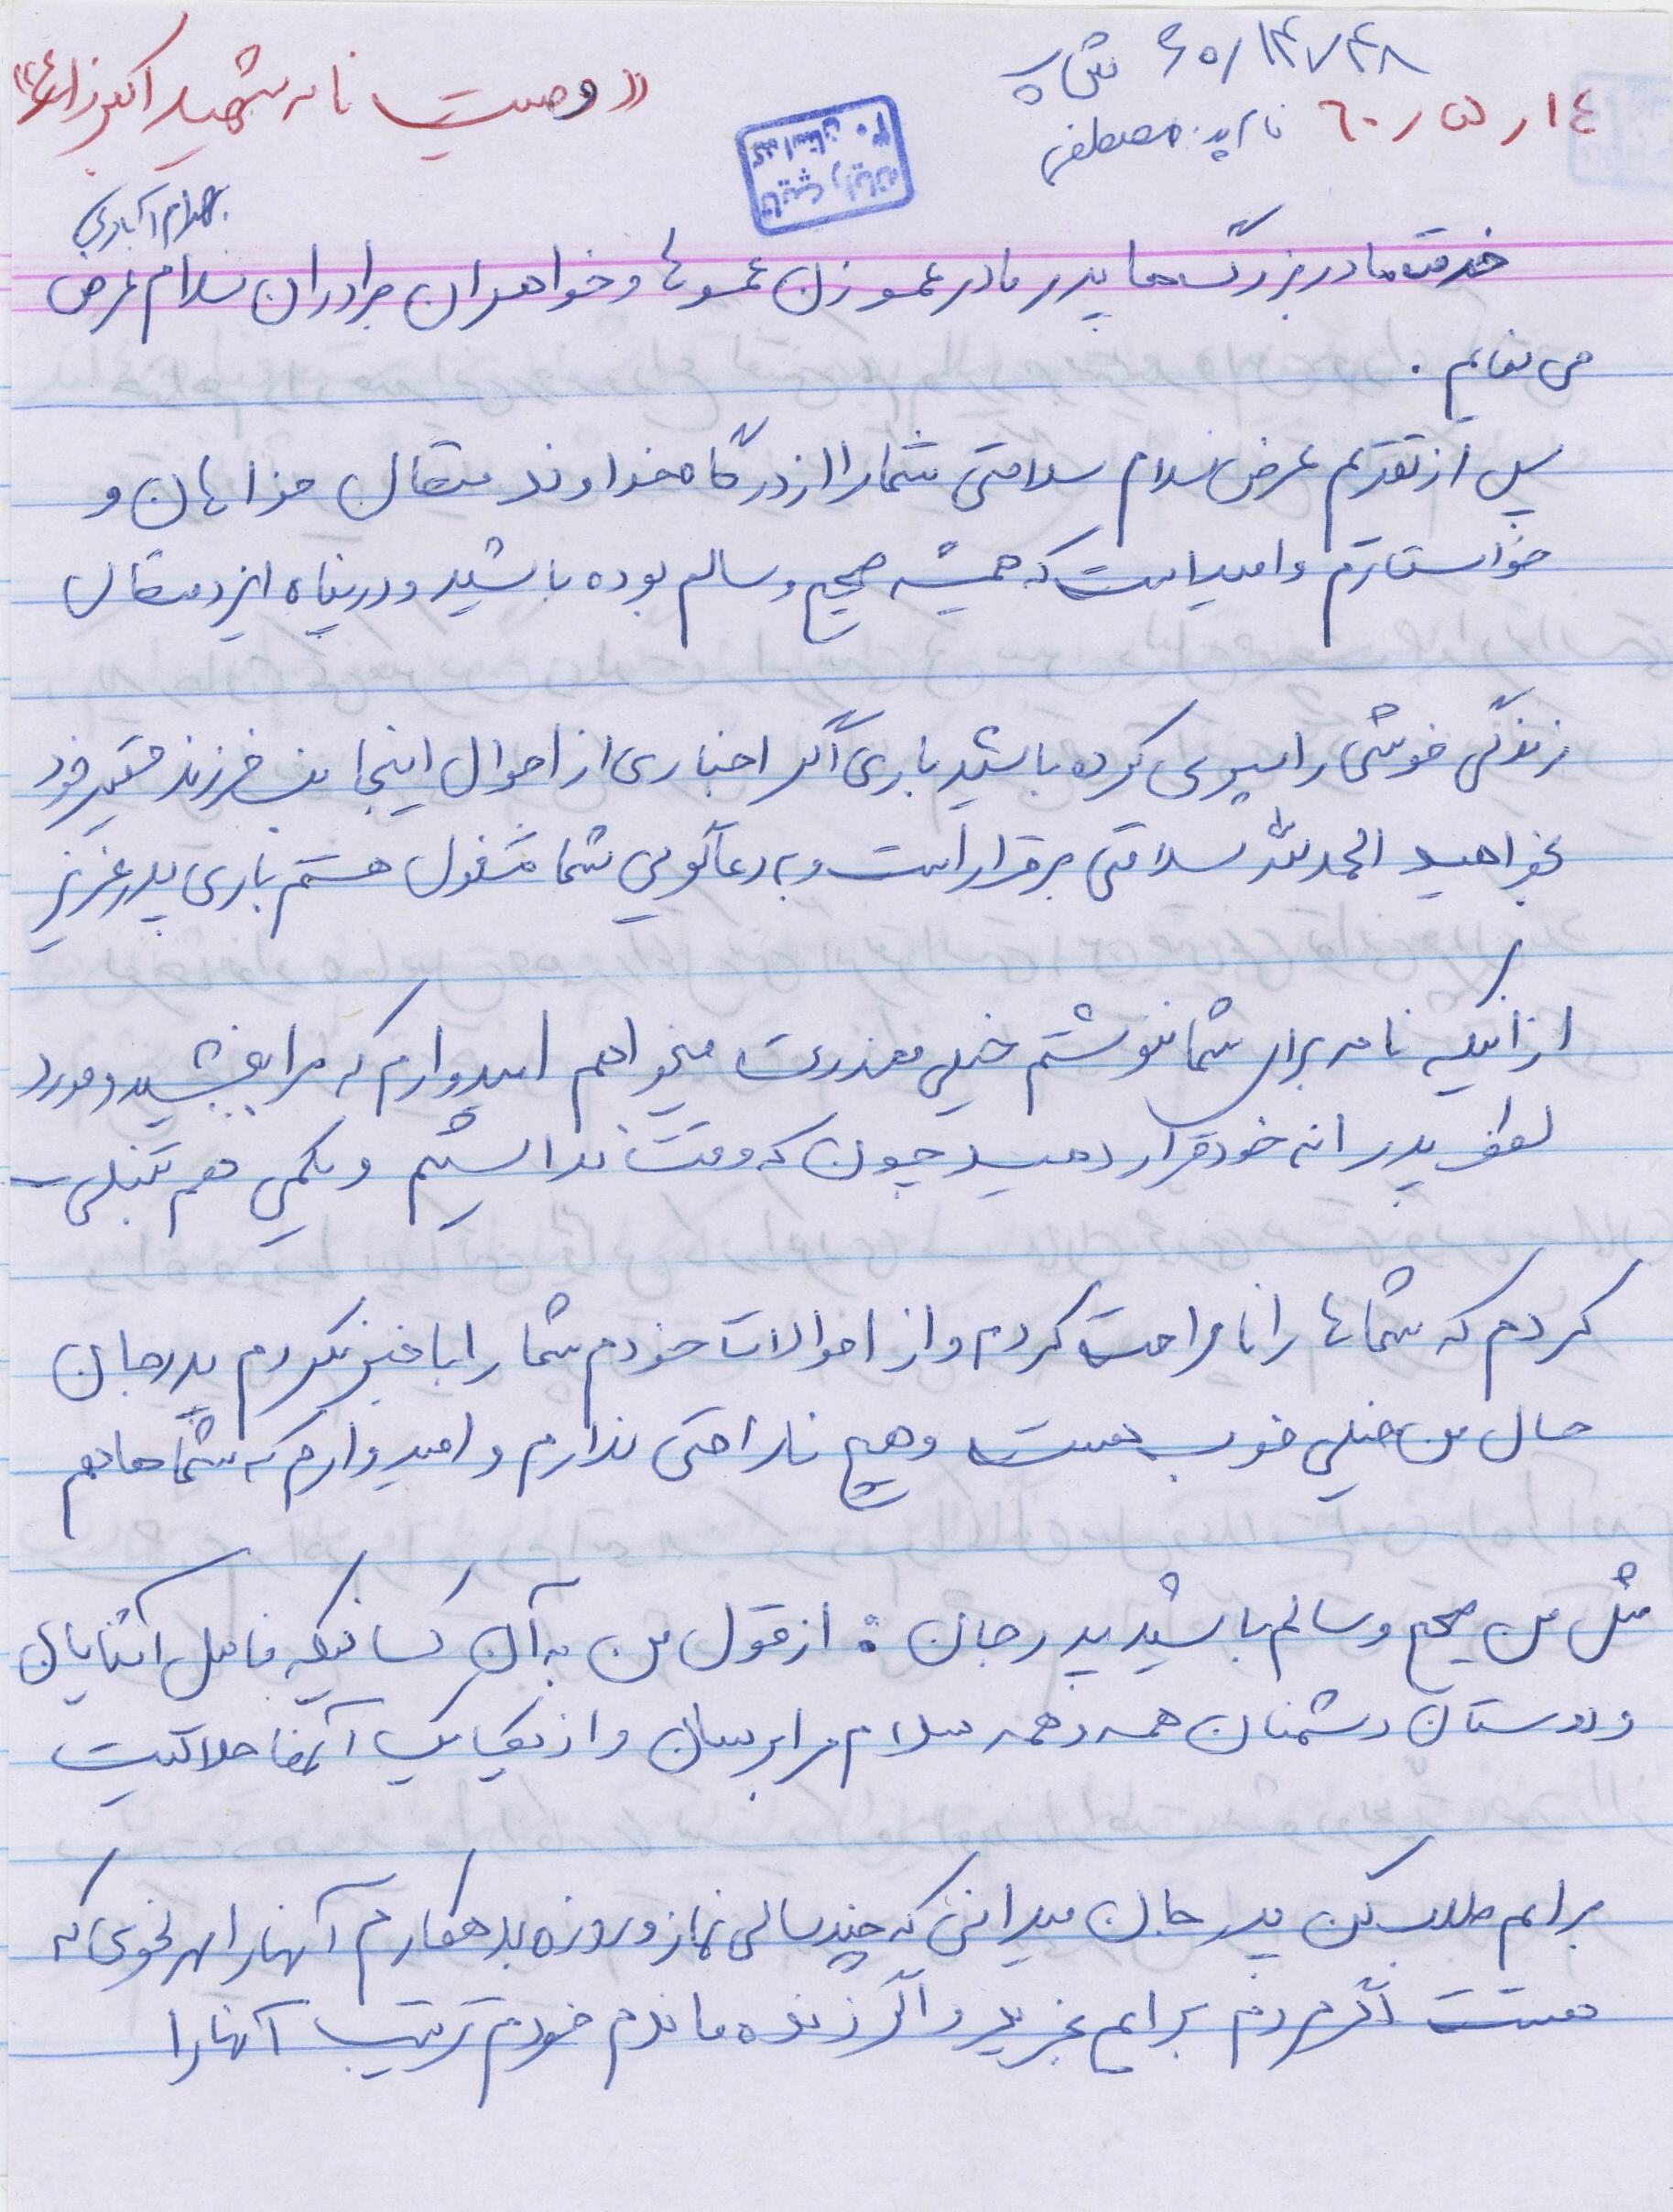 «وصیت نامه شهید اکبر زارعی»
بهرام آبادی
۶۵/۱۴۷۴۸ ش پ
۱٤ ر ۵ ر ٦۰ نام پدر: مصطفی
خدمت مادر بزرگ ها پدر مادر عمو زن عموها و خواهران برادران سلام عرض
می نمایم .
پس از تقدیم عرض سلام سلامتی شما را از درگاه خداوند متعال خواهان و
خواستارم و امید است که همیشه صحیح و سالم بوده باشید و در پناه ایزد متعال
زندگی خوشی را سپری کرده باشید باری اگر اخباری از احوال اینجانب فرزند حقیر خود
بخواهید الحمدلله سلامتی برقرار است و به دعاگویی شما مشغول هستم باری پدر عزیز
از اینکه نامه برای شما ننوشتم خیلی معذرت میخواهم امیدوارم که مرا ببخشید و مورد
لطف پدرانه خود قرار دهید چون که وقت نداشتیم و یکمی هم تنبلی
کردم که شماها را ناراحت کردم و از احوالات خودم شما را باخبر نکردم پدر جان
حال من خیلی خوب هست و هیچ ناراحتی ندارم و امیدوارم که شماها هم
مثل من صحیح و سالم باشید پدر جان : از قول من به آن کسانیکه فامیل آشنایان
و دوستان دشمنان همه و همه سلام مرا برسان و از یکایک آنها حلالیت
برایم طلب کن پدر جان میدانی که چند سالی نماز و روزه بدهکارم آنها را هر نحوی که
هست اگر مردم برایم بخرید و اگر زنده ماندم خودم ترتیب آنها را